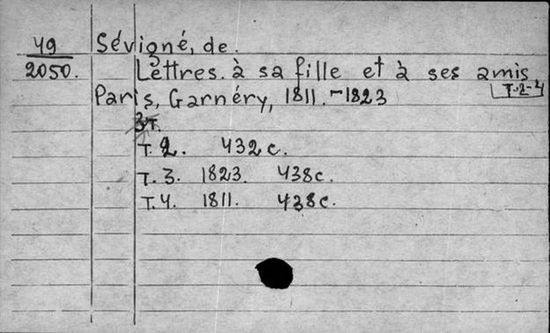 49 Sévigné, de.
2050. Lettres à sa fille et à ses amis
Paris, Garnéry, 1811.-1823 T.2-4
3т.
T. 2. 432 c.
T. 3. 1823. 438c.
T. 4. 1811. 438c.